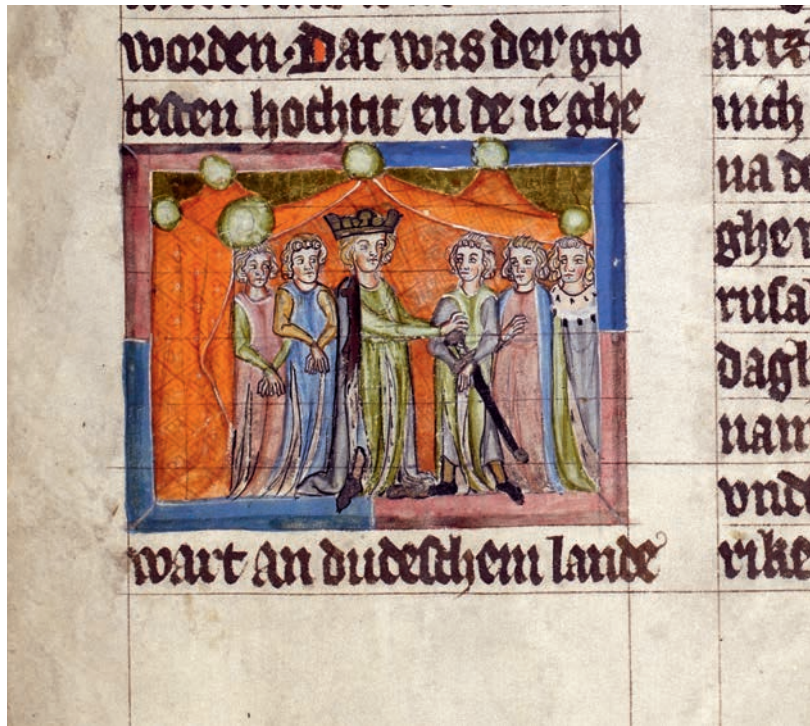 worden. Dat was der gro
testen hochtit en de ie ghe
wart an dudeschem lande
nich
ua
dagh
nam
vnd
rike